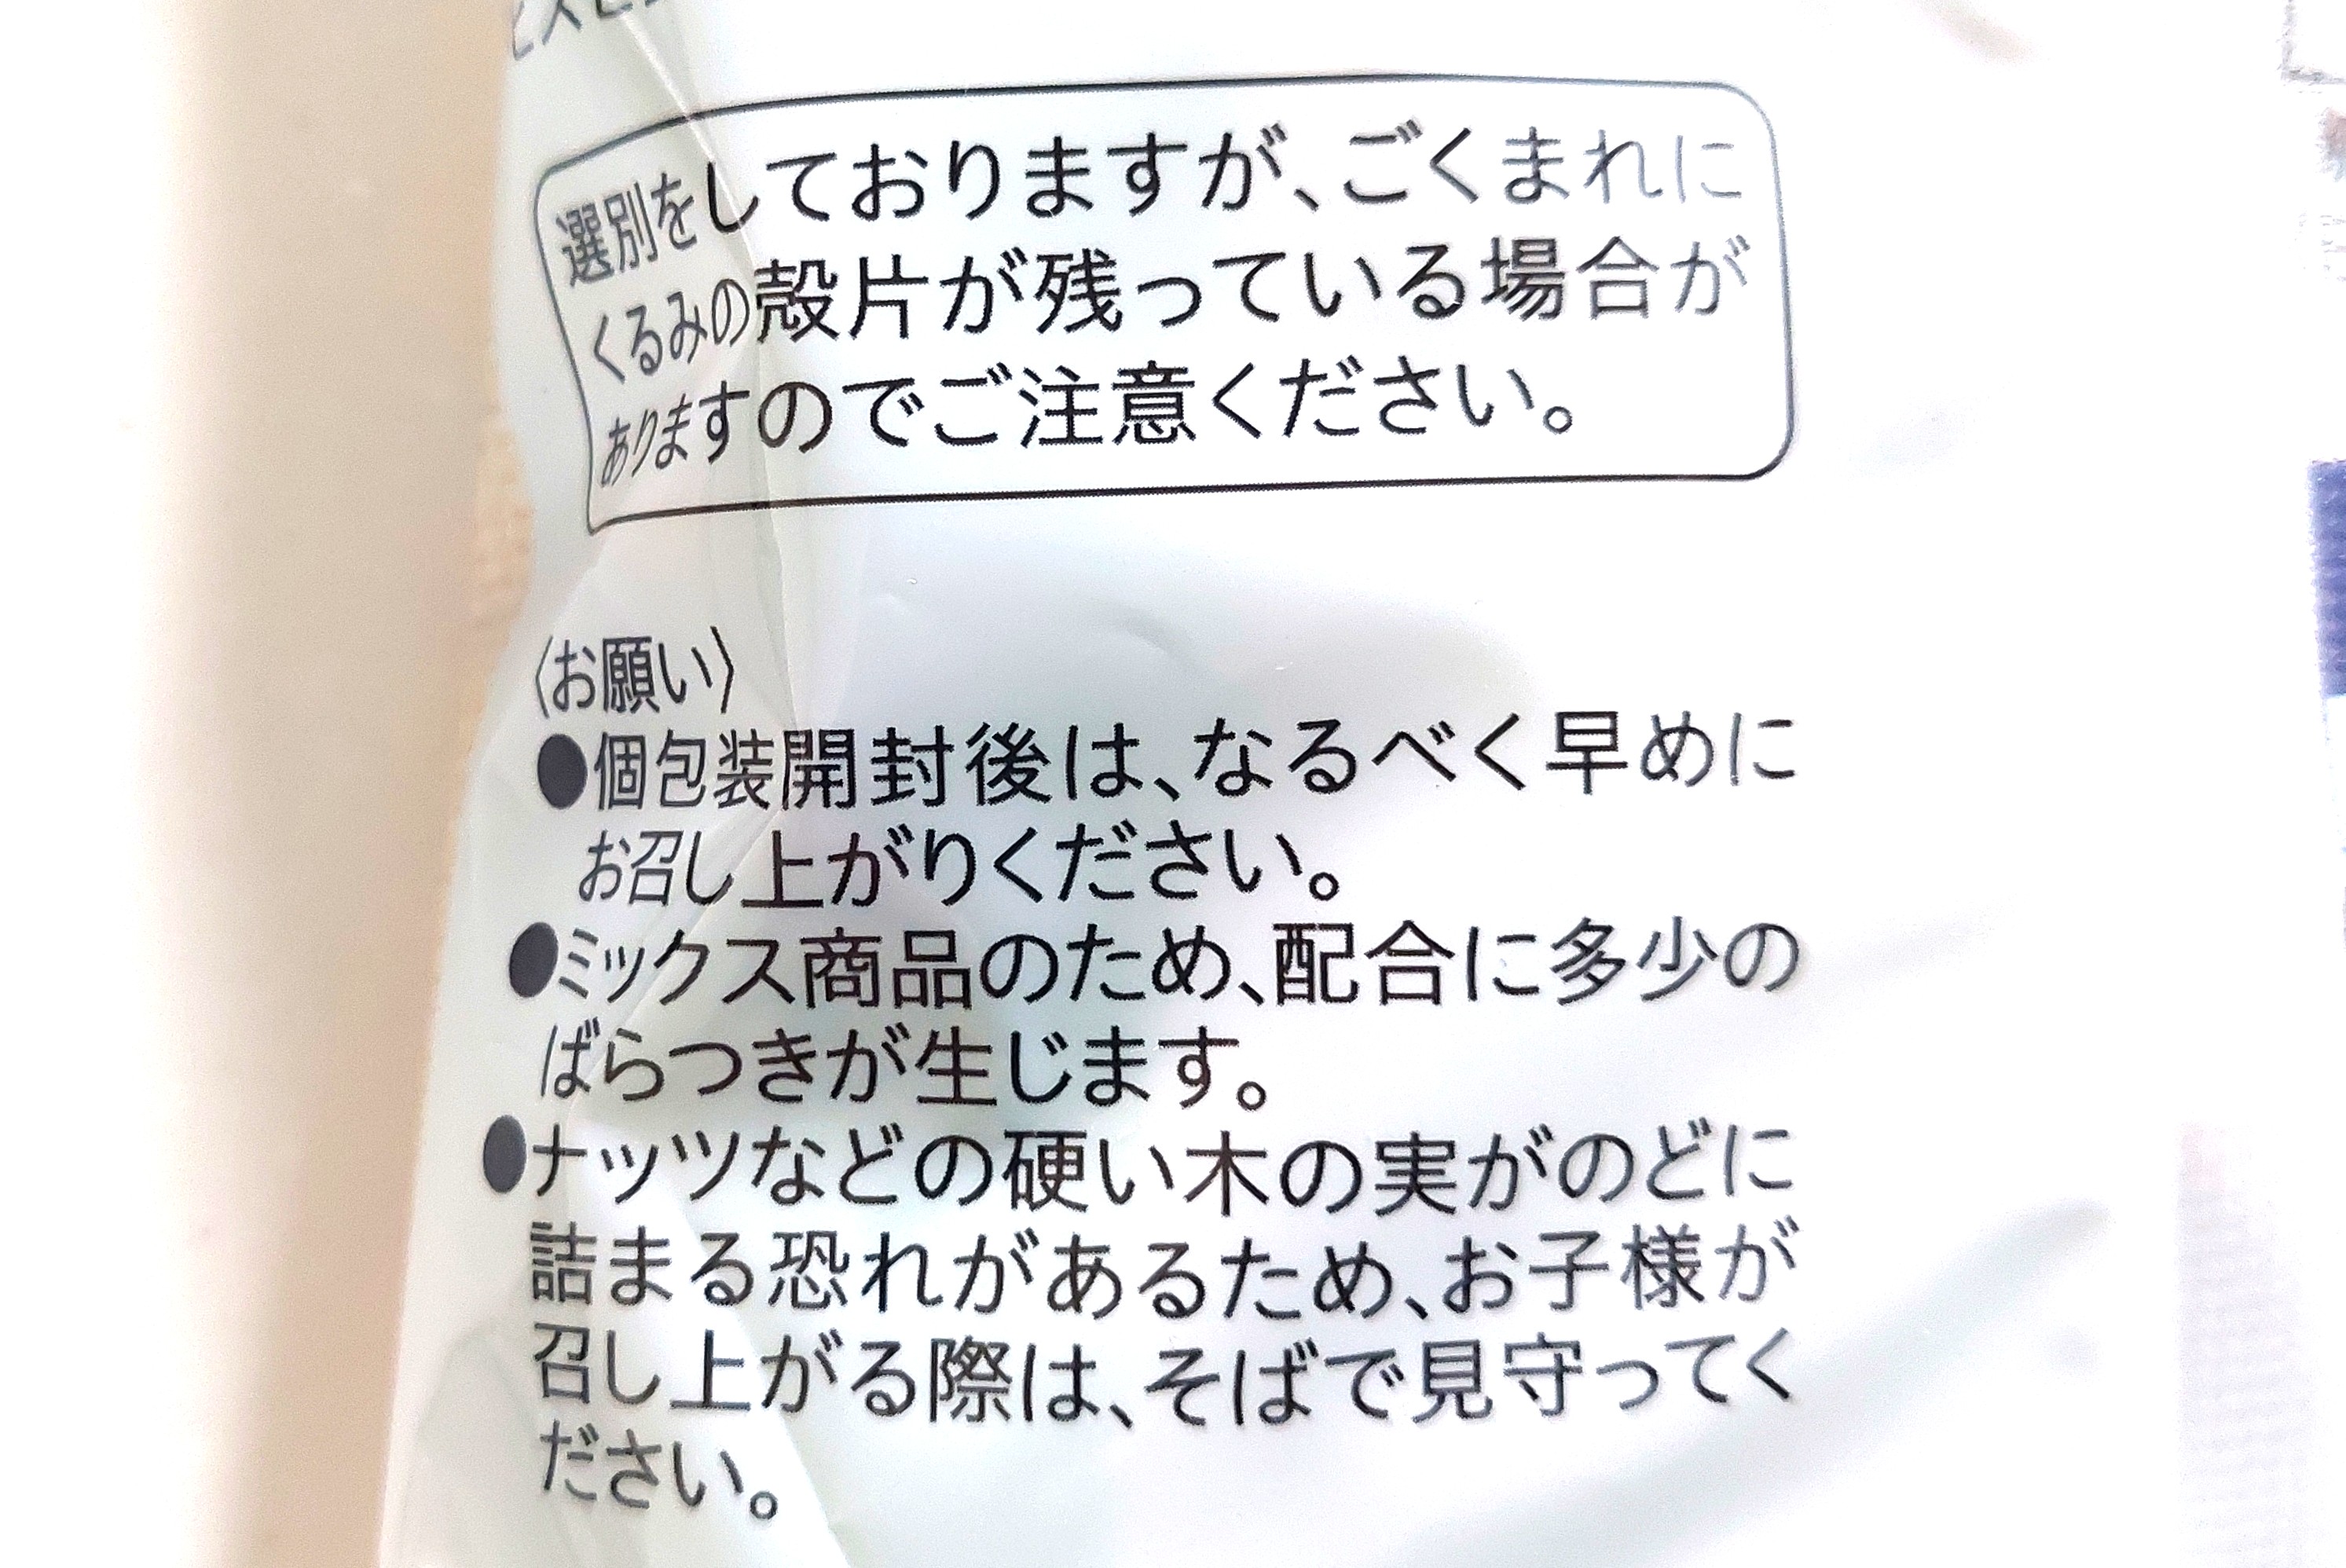 選別をしておりますが、ごくまれに
くるみの殻片が残っている場合が
ありますのでご注意ください。
〈お願い〉
●個包装開封後は、なるべく早めに
お召し上がりください。
●ミックス商品のため、配合に多少の
ばらつきが生じます。
●ナッツなどの硬い木の実がのどに
詰まる恐れがあるため、お子様が
召し上がる際は、そばで見守ってく
ださい。